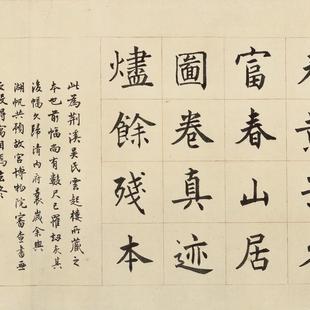 元黃子久
富春山居
圖卷真迹
燼餘殘本
此為荆溪吴氏雲起樓所藏之
本也前幅尚有數尺已罹劫灰其
後幅久歸清内府曩歲余與
湖帆共預故宫博物院審查書画